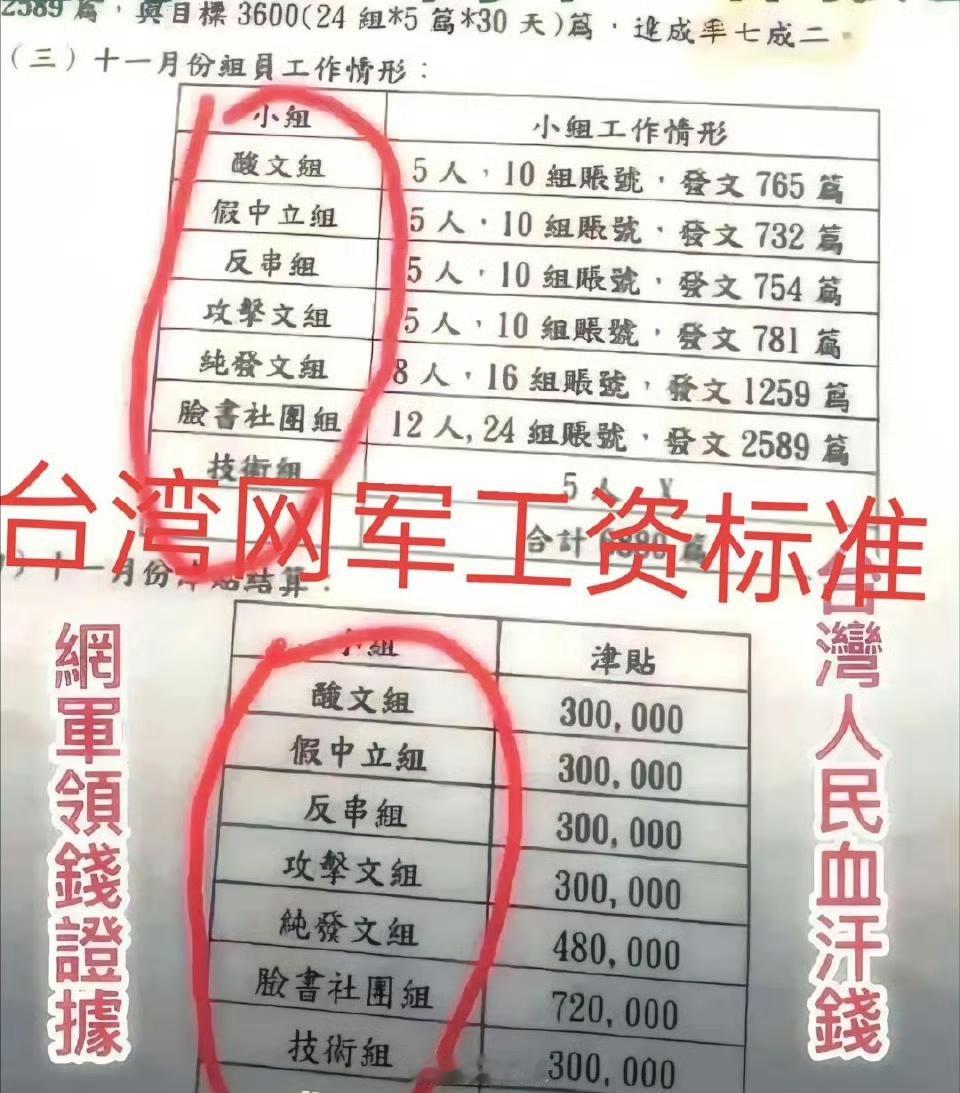 2589 篇,與目標 3600(24 組*5 篇*30 天)篇,達成率七成二。
(三)十一月份組員工作情形:
小組 小組工作情形
酸文組 5 人,10 組賬號,發文 765 篇
假中立組 5 人,10 組賬號,發文 732 篇
反串組 5 人,10 組賬號,發文 754 篇
攻擊文組 5 人,10 組賬號,發文 781 篇
純發文組 8 人,16 組賬號,發文 1259 篇
臉書社團組 12 人,24 組賬號,發文 2589 篇
技術組 5 人 X
合計
台湾网军工资标准
十一月份津貼結算:
小組 津貼
酸文組 300,000
假中立組 300,000
反串組 300,000
攻擊文組 300,000
純發文組 480,000
臉書社團組 720,000
技術組 300,000
網軍領錢證據
台灣人民血汗錢